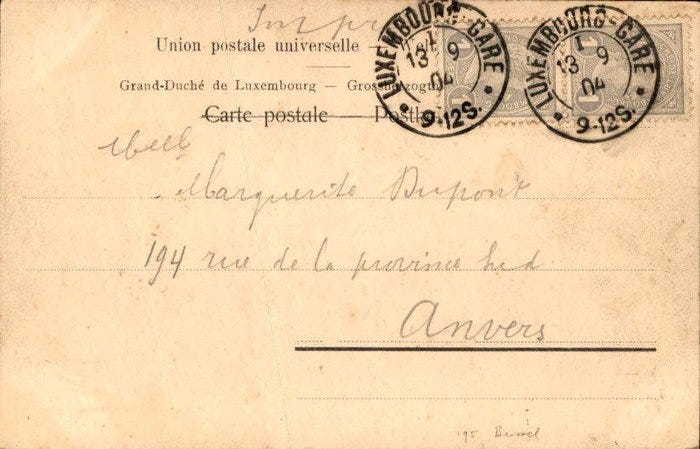 Impr
Union postale universelle —
Grand-Duché de Luxembourg — Grossherzogt
Carte postale — Postk
LUXEMBOURG-GARE
1
13 9
04
* 9-12S. *
LUXEMBOURG-GARE
1
13 9
04
* 9-12S. *
1
Melle
Marguerite Dupont
194 rue de la province Sud
Anvers
195